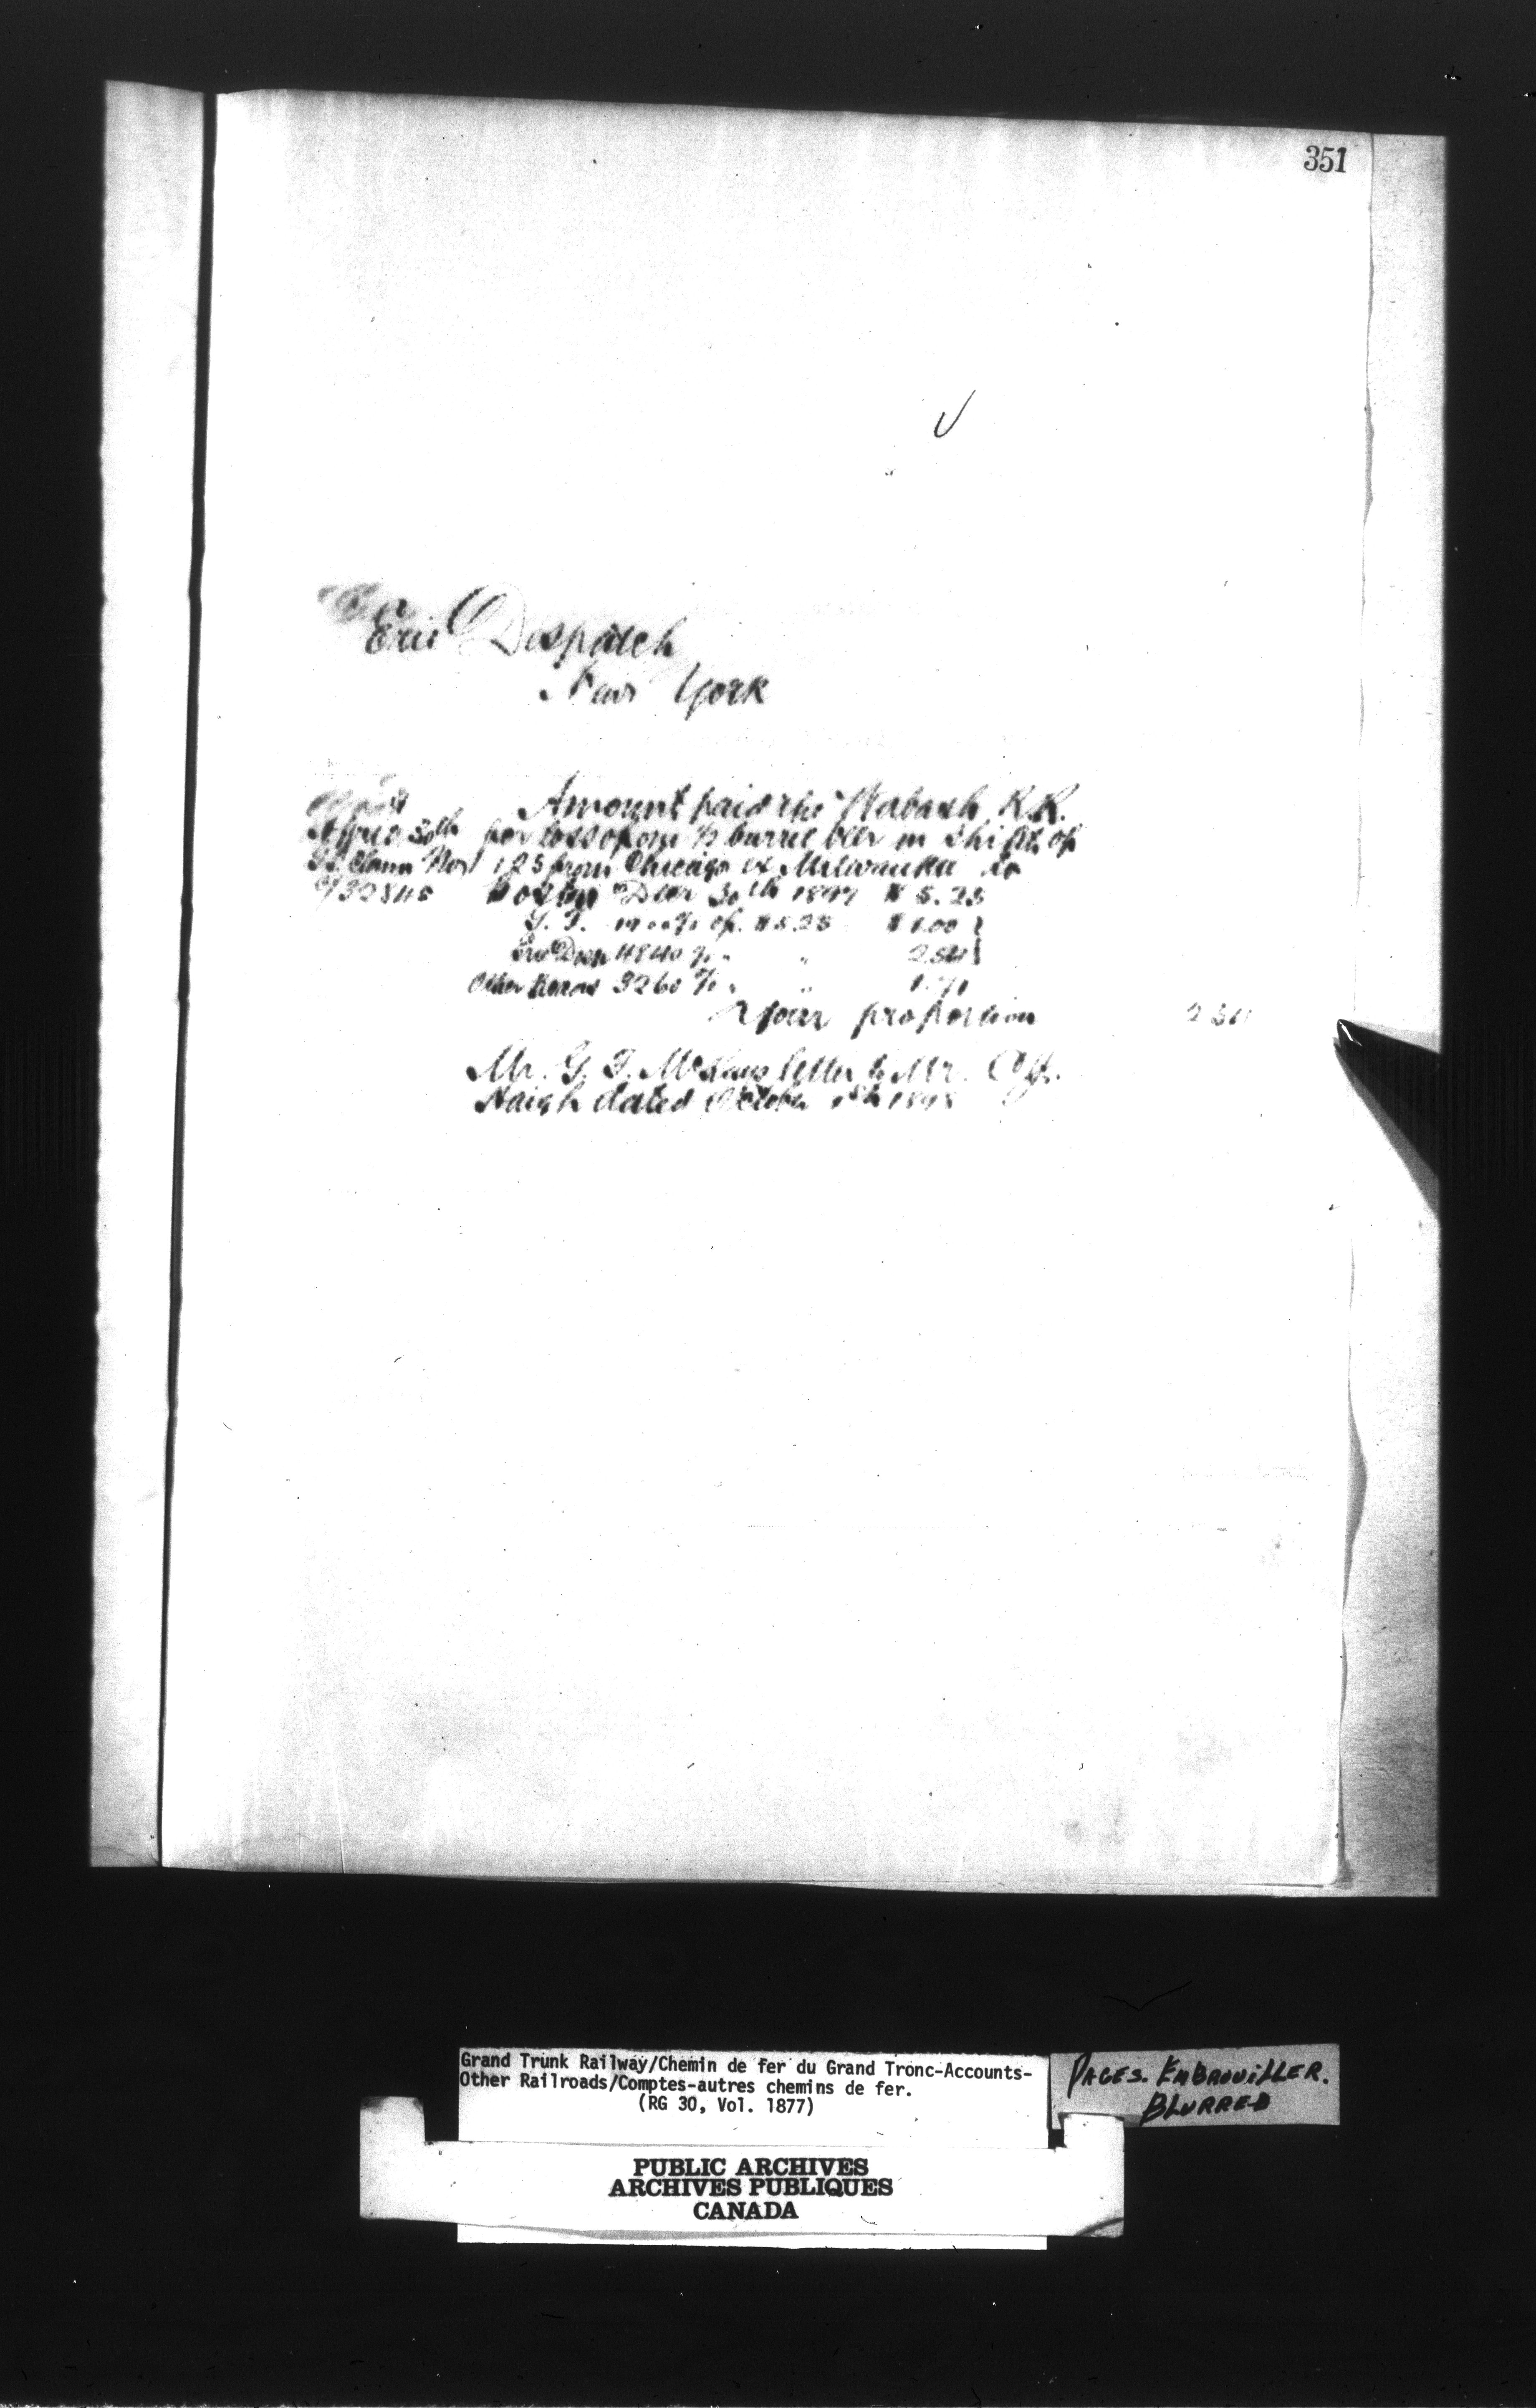 351
Erie Despatch
New York
Amount paid the Wabash R.R.
April 30th for loss of one ½ barrel beer in shipt. of
Claim No. 125 from Chicago ex Milwaukee to
932845 Boston Decr 30th 1897 $5.25
G. T. 19 00% of $5.25 $1.00
Erie Desp 4840% " " 2.54
Other 3260% " " 1.71
Your proportion 2 54
Mr. G. T. letter to Mr.
Haigh dated October 1898
Grand Trunk Railway/Chemin de fer du Grand Tronc-Accounts-
Other Railroads/Comptes-autres chemins de fer.
(RG 30, Vol. 1877)
PAGES. EMBROUILLER.
BLURRED
PUBLIC ARCHIVES
ARCHIVES PUBLIQUES
CANADA